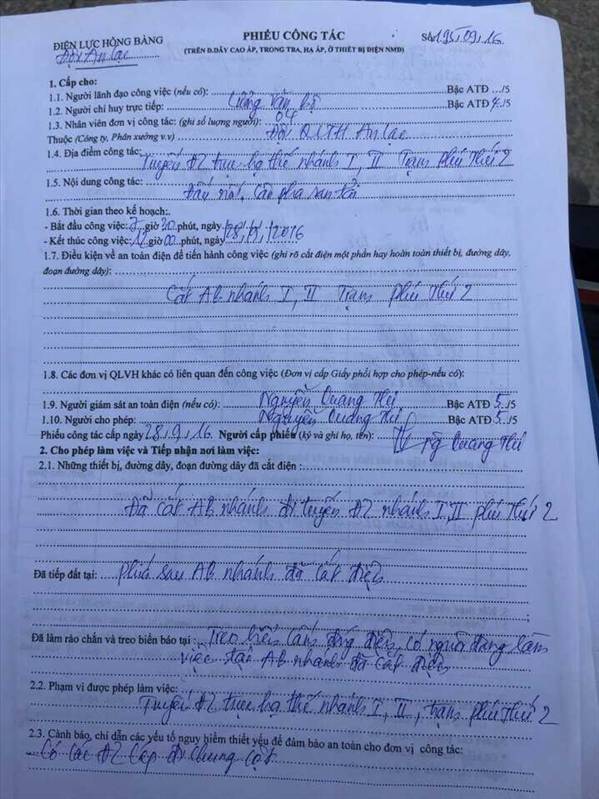 ĐIỆN LỰC HỒNG BÀNG
Đội An Lạc
PHIẾU CÔNG TÁC
(TRÊN Đ.DÂY CAO ÁP, TRONG TBA, HẠ ÁP, Ở THIẾT BỊ ĐIỆN NMĐ)
Số 195/09/16
1. Cấp cho:
1.1. Người lãnh đạo công việc (nếu có): Bậc ATĐ .../5
1.2. Người chỉ huy trực tiếp: Văn Bậc ATĐ 4./5
1.3. Nhân viên đơn vị công tác: (ghi số lượng người): 04
Thuộc (Công ty, Phân xưởng v.v) Đội QLTH An Lạc
1.4. Địa điểm công tác:
Tuyến ĐZ trục hạ thế nhánh I, II Trạm Phú Thứ 2
1.5. Nội dung công tác:
Đấu nối, cân pha san tải
1.6. Thời gian theo kế hoạch:.
- Bắt đầu công việc: 7 giờ 30 phút, ngày 28/9/2016
- Kết thúc công việc: giờ 00 phút, ngày
1.7. Điều kiện về an toàn điện để tiến hành công việc (ghi rõ cắt điện một phần hay hoàn toàn thiết bị, đường dây,
đoạn đường dây):
Cắt AB nhánh I, II Trạm Phú Thứ 2
1.8. Các đơn vị QLVH khác có liên quan đến công việc (Đơn vị cấp Giấy phối hợp cho phép-nếu có):
1.9. Người giám sát an toàn điện (nếu có): Nguyễn Quang Bậc ATĐ 5./5
1.10. Người cho phép: Nguyễn Quang Bậc ATĐ 5./5
Phiếu công tác cấp ngày 28.9.16. Người cấp phiếu (ký và ghi họ, tên): Quang
2. Cho phép làm việc và Tiếp nhận nơi làm việc:
2.1. Những thiết bị, đường dây, đoạn đường dây đã cắt điện :
Đã cắt AB nhánh đi tuyến ĐZ nhánh I, II Phú Thứ 2
Đã tiếp đất tại: phía sau AB nhánh đã cắt điện
Đã làm rào chắn và treo biển báo tại : Treo biển cấm đóng điện, có người đang làm
việc tại AB nhánh đã cắt điện
2.2. Phạm vi được phép làm việc:
Tuyến ĐZ trục hạ thế nhánh I, II, trạm Phú Thứ 2
2.3. Cảnh báo, chỉ dẫn các yếu tố nguy hiểm thiết yếu để đảm bảo an toàn cho đơn vị công tác:
Có các ĐZ cáp đi chung cột